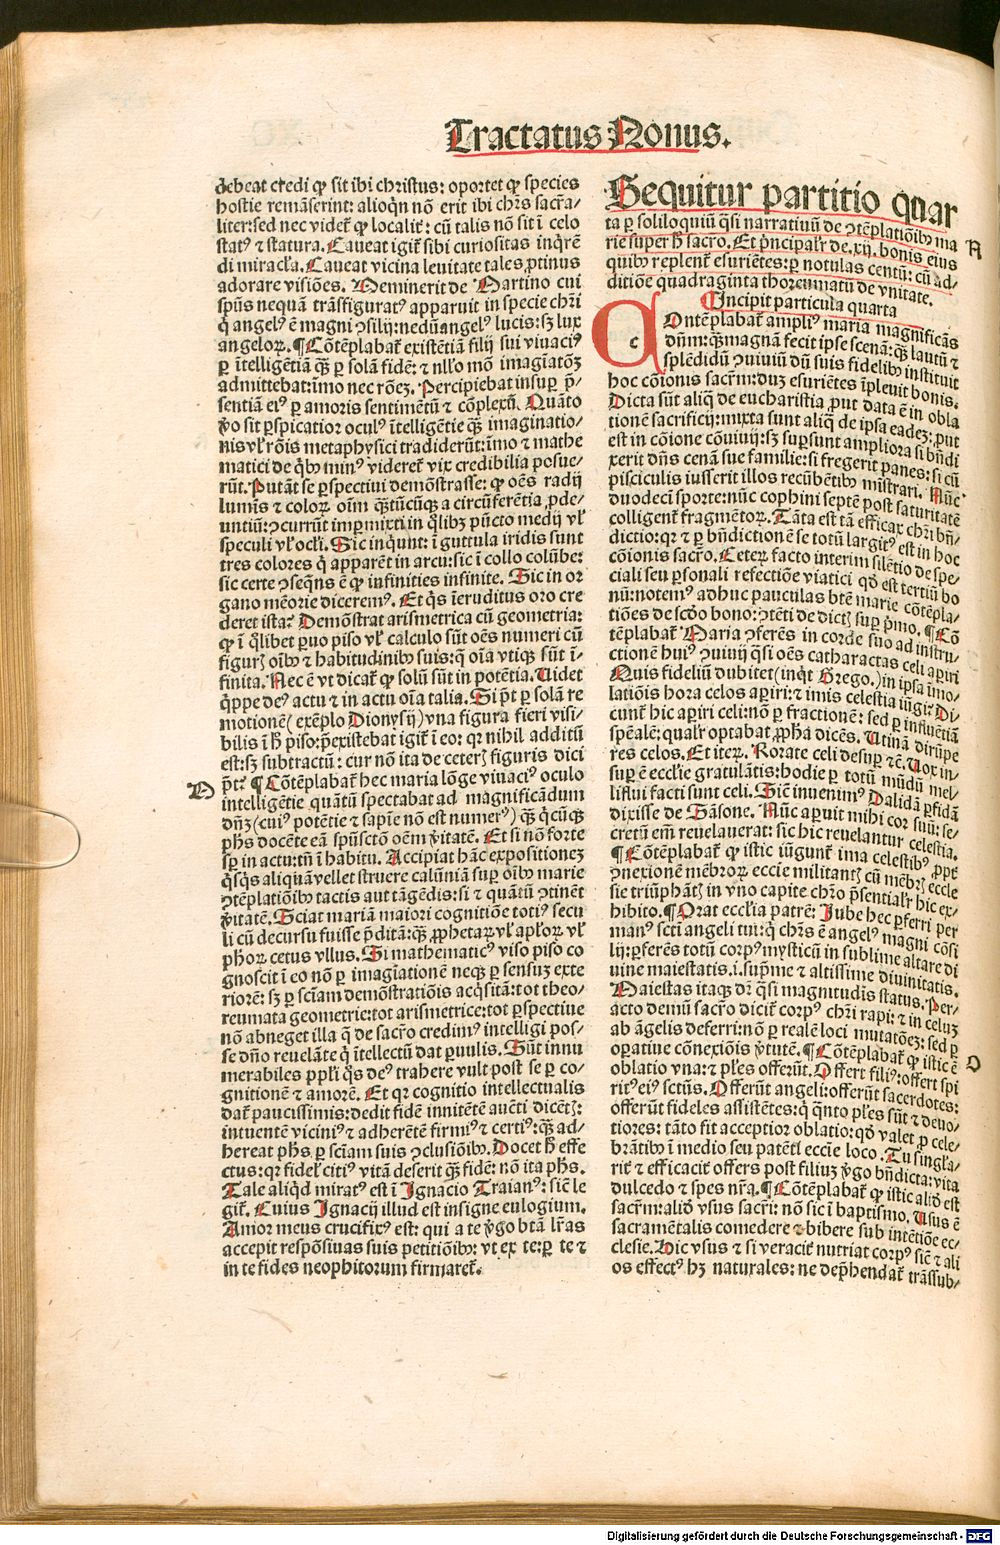 Tractatus Nonus.
debeat credi ꝙ sit ibi christus: oportet ꝙ species
hostie remãserint: alioqͥn nõ erit ibi chr̃s sacr̃a⸗
liter: sed nec videt᷑ ꝙ localiť: cũ talis nõ sit ĩ celo
statꝰ ⁊ statura. Caueat igit᷑ sibi curiositas inqͥrẽ
di miracťa. Caueat vicina leuitate tales ꝓtinus
adorare visiões. Meminerit de Martino cui
spũs nequã trãsfiguratꝰ apparuit in specie chr̃i
q̇ angelꝰ ẽ magni ꝯsilij: nedũ angelꝰ lucis: sꝫ lux
angeloꝝ. ¶ Cõtẽplabat᷑ existẽtiã filij sui viuaciꝰ
ꝑ ĩtelligẽtiã qͣꝫ ꝑ solã fidẽ: ⁊ nťlo mõ imagĩatõꝫ
admittebat: ĩmo nec rõeꝫ. Percipiebat insuꝑ p̃⸗
sentiã eiꝰ ꝑ amoris sentimẽtũ ⁊ cõplexũ. Quãto
ṽo sit ꝑspicatior oculꝰ ĩtelligẽtie qͣꝫ imaginatio⸗
nis vť rõis metaphysici tradiderũt: ĩmo ⁊ mathe
matici de qͥbꝰ minꝰ videret᷑ vix credibilia posue⸗
rũt. Putãt se ꝑspectiui demõstrasse: ꝙ oẽs radij
lumĩs ⁊ coloꝝ oĩm qͣꝫtũcũqꝫ a circũferẽtia ꝓde⸗
untiũ: ꝯcurrũt imꝑmixti in qͥlibꝫ pũcto medij vť
speculi vť ocťi. Sic inqͥunt: ĩ guttula iridis sunt
tres colores q̇ apparẽt in arcu: sic ĩ collo colũbe:
sic certe ꝯseqñs ẽ ꝙ infinities infinite. Sic in or
gano mẽorie diceremꝰ. Et qͥs ĩeruditus oro cre
deret ista? Demõstrat arismetrica cũ geometria:
ꝙ ĩ qͥlibet paruo piso vť calculo sũt oẽs numeri cũ
figurꝭ oĩbꝰ ⁊ habitudinibꝰ suis: q̃ oĩa vtiqꝫ sũt ĩ⸗
finita. Nec ẽ vt dicat᷑ ꝙ solũ sũt in potẽtia. Videt
qͥppe deꝰ actu ⁊ in actu oĩa talia. Si p̃t ꝑ solã re
motionẽ (exẽplo Dionysij) vna figura fieri visi⸗
bilis ĩ h̃ piso: p̃existebat igit᷑ ĩ eo: qꝛ nihil additũ
est: sꝫ subtractũ: cur nõ ita de ceterꝭ figuris dici
D
p̃t? ¶ Cõtẽplabat᷑ hec maria lõge viuaciꝰ oculo
intelligẽtie quãtũ spectabat ad magnificãdum
dñꝫ (cuiꝰ potẽtie ⁊ sapĩe nõ est numerꝰ) qͣꝫ qͥcũqꝫ
phs̃ docẽte eã spũsctõ oẽm v̇itatẽ. Et si nõ forte
sꝑ in actu: tñ ĩ habitu. Accipiat hãc expositioneꝫ
qͥsqͥs aliquã vellet struere calũniã suꝑ oĩbꝰ marie
ꝯtẽplatiõibꝰ tactis aut tãgẽdis: si ⁊ quãtũ ꝯtinẽt
v̇itatẽ. Sciat mariã maiori cognitiõe totiꝰ secu
li cũ decursu fuisse p̃ditã: qͣꝫ ꝓphetaꝝ vť apťoꝝ vť
phoꝝ cetus vllus. Si mathematicꝰ viso piso co
gnoscit ĩ eo nõ ꝑ imagĩationẽ neqꝫ ꝑ sensuꝫ exte
riorẽ: sꝫ ꝑ sciam demõstratiõis acqͥsitã: tot theo⸗
reumata geometrie: tot arismetrice: tot ꝑspectiue
nõ abneget illa q̃ de sacrõ credimꝰ intelligi pos⸗
se dño reuelãte q̇ ĩtellectũ dat paruulis. Sũt innu
merabiles ppťi qͥs deꝰ trahere vult post se ꝑ co⸗
gnitionẽ ⁊ amorẽ. Et qꝛ cognitio intellectualis
dat᷑ paucissimis: dedit fidẽ innitẽtẽ aucti dicẽtꝭ:
intuentẽ viciniꝰ ⁊ adherẽtẽ firmiꝰ ⁊ certiꝰ: qͣꝫ ad⸗
hereat phs̃ ꝑ sciam suis ꝯclusiõibꝰ. Docet h̃ effe
ctus: qꝛ fideť citiꝰ vitã deserit qͣꝫ fidẽ: nõ ita phs̃.
Tale aliqͥd miratꝰ est ĩ Ignacio Traianꝰ: siẽ le
git᷑. Cuius Ignacij illud est insigne eulogium.
Amor meus crucifixꝰ est: qui a te ṽgo btã lr̃as
accepit respõsiuas suis petitiõibꝰ: vt ex te: ꝑ te ⁊
in te fides neophitorum firmaret᷑.
Sequitur partitio quar
ta ꝑ soliloquiũ qͣsi narratiuũ de ꝯtẽplatiõibꝰ ma
rie super h̃ sacro. Et p̃ncipalr̃ de. xij. bonis eius
A
quibꝰ replent᷑ esuriẽtes: ꝑ notulas centũ: cũ ad⸗
ditiõe quadraginta thoreumatũ de vnitate.
¶ Incipit particula quarta
c
Ontẽplabat᷑ ampliꝰ maria magnificãs
dñm: qͣꝫ magnã fecit ipse scenã: qͣꝫ lautũ ⁊
splẽdidũ ꝯuiuiũ dũ suis fidelibꝰ instituit
hoc cõionis sacrm̃: duꝫ esuriẽtes ĩpleuit bonis.
Dicta sũt aliq̃ de eucharistia ꝓut data ẽ in obla
tione sacrificij: mixta sunt aliq̃ de ipsa eadeꝫ: ꝓut
est in cõione cõuiuij: sꝫ suꝑsunt ampliora si bñdi
xerit dñs cenã sue familie: si fregerit panes: si cũ
pisciculis iusserit illos recũbẽtibꝰ mĩstrari. Nũc
duodeci sporte: nũc cophini septẽ post saturitatẽ
colligent᷑ fragmẽtoꝝ. Tãta est tã efficax chr̃i bñ⸗
dictio: qꝛ ⁊ ꝑ bñdictionẽ se totũ largit᷑ est in hoc
cõionis sacrõ. Ceteꝝ facto interim silẽtio de spe⸗
ciali seu ꝑsonali refectiõe viatici qd̃ est tertiũ bo
nũ: notemꝰ adhuc pauculas btẽ marie cõtẽpla⸗
tiões de scdõ bono: ꝯtẽti de dictꝭ suꝑ p̃mo. ¶ Cõ
tẽplabat᷑ Maria ꝯferẽs in corde suo ad instru⸗
ctionẽ huiꝰ ꝯuiuij qͣsi oẽs catharactas celi aꝑiri
Quis fideliũ dubitet (inqͥt Grego.) in ipsa ĩmo⸗
latiõis hora celos aꝑiri: ⁊ imis celestia iũgi: Di⸗
cunt᷑ hic aꝑiri celi: nõ ꝑ fractionẽ: sed ꝑ influẽtiã
sp̃ealẽ: qualr̃ optabat ꝓpha dicẽs. Utinã dirũpe
res celos. Et iteꝝ. Rorate celi desuꝑ ⁊c̃. Vox in⸗
suꝑ ẽ eccťie gratulãtis: hodie ꝑ totũ mũdũ mel⸗
liflui facti sunt celi. Siẽ inuenimꝰ Dalidã ꝑfidã
dixisse de Sãsone. Nũc aperuit mihi cor suũ: se⸗
cretũ em̃ reuelauerat: sic hic reuelantur celestia.
¶ Cõtẽplabat᷑ ꝙ istic iũgunt᷑ ima celestibꝰ, ꝓpť
ꝯnexionẽ mẽbroꝝ eccťie militantꝭ cũ mẽbrꝭ eccťe
sie triũphãtꝭ in vno capite chrõ p̃sentialr̃ hic ex⸗
hibito. ¶ Orat eccťia patrẽ: Jube hec ꝑferri per
manꝰ scti angeli tui: q̇ chr̃s ẽ angelꝰ magni cõsi
lij: ꝑferẽs totũ corpꝰ mysticũ in sublime altare di
uine maiestatis. i. sup̃me ⁊ altissime diuinitatis.
Maiestas itaqꝫ dr̃ qͣsi magnitudĩs status. Per⸗
acto demũ sacrõ dicit᷑ corpꝰ chr̃i rapi: ⁊ in celuꝫ
ab ãgelis deferri: nõ ꝑ realẽ loci mutatõeꝫ: sed ꝑ
oꝑatiue cõnexiõis v̇tutẽ. ¶ Cõtẽplabat᷑ ꝙ istic ẽ
O
oblatio vna: ⁊ pťes offerũt. Offert filiꝰ: offert spi
ritꝰ eiꝰ sctũs. Offerũt angeli: offerũt sacerdotes:
offerũt fideles assistẽtes: q̇ qͣnto pťes sũt ⁊ deuo⸗
tiores: tãto fit acceptior oblatio: qd̃ valet ꝓ cele⸗
brãtibꝰ ĩ medio seu patẽti eccťie loco. Tu singťa⸗
riť ⁊ efficaciť offers post filiuꝫ ṽgo bñdicta: vita
dulcedo ⁊ spes nr̃a. ¶ Cõtẽplabat᷑ ꝙ istic aliõ est
sacrm̃: aliõ vsus sacrĩ: nõ sic ĩ baptismo. Usus ẽ
sacramẽtalis comedere ⁊ bibere sub intẽtiõe ec⸗
clesie. Hic vsus ⁊ si veraciť nutriat corpꝰ siẽ ⁊ ali
os effectꝰ hꝫ naturales: ne dep̃hendat᷑ trãssub⸗
Digitalisierung gefördert durch die Deutsche Forschungsgemeinschaft - DFG